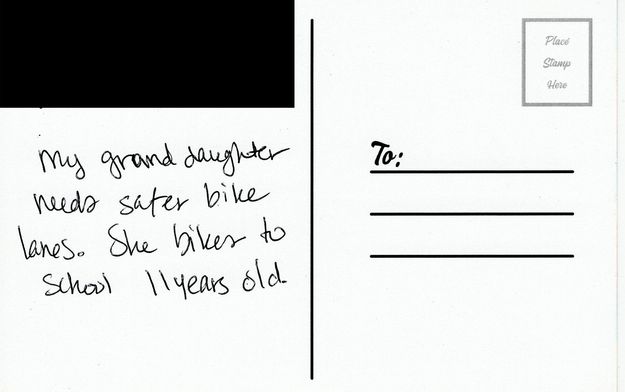 My grand daughter
needs safer bike
lanes. She bikes to
school 11 years old.
Place
Stamp
Here
To: